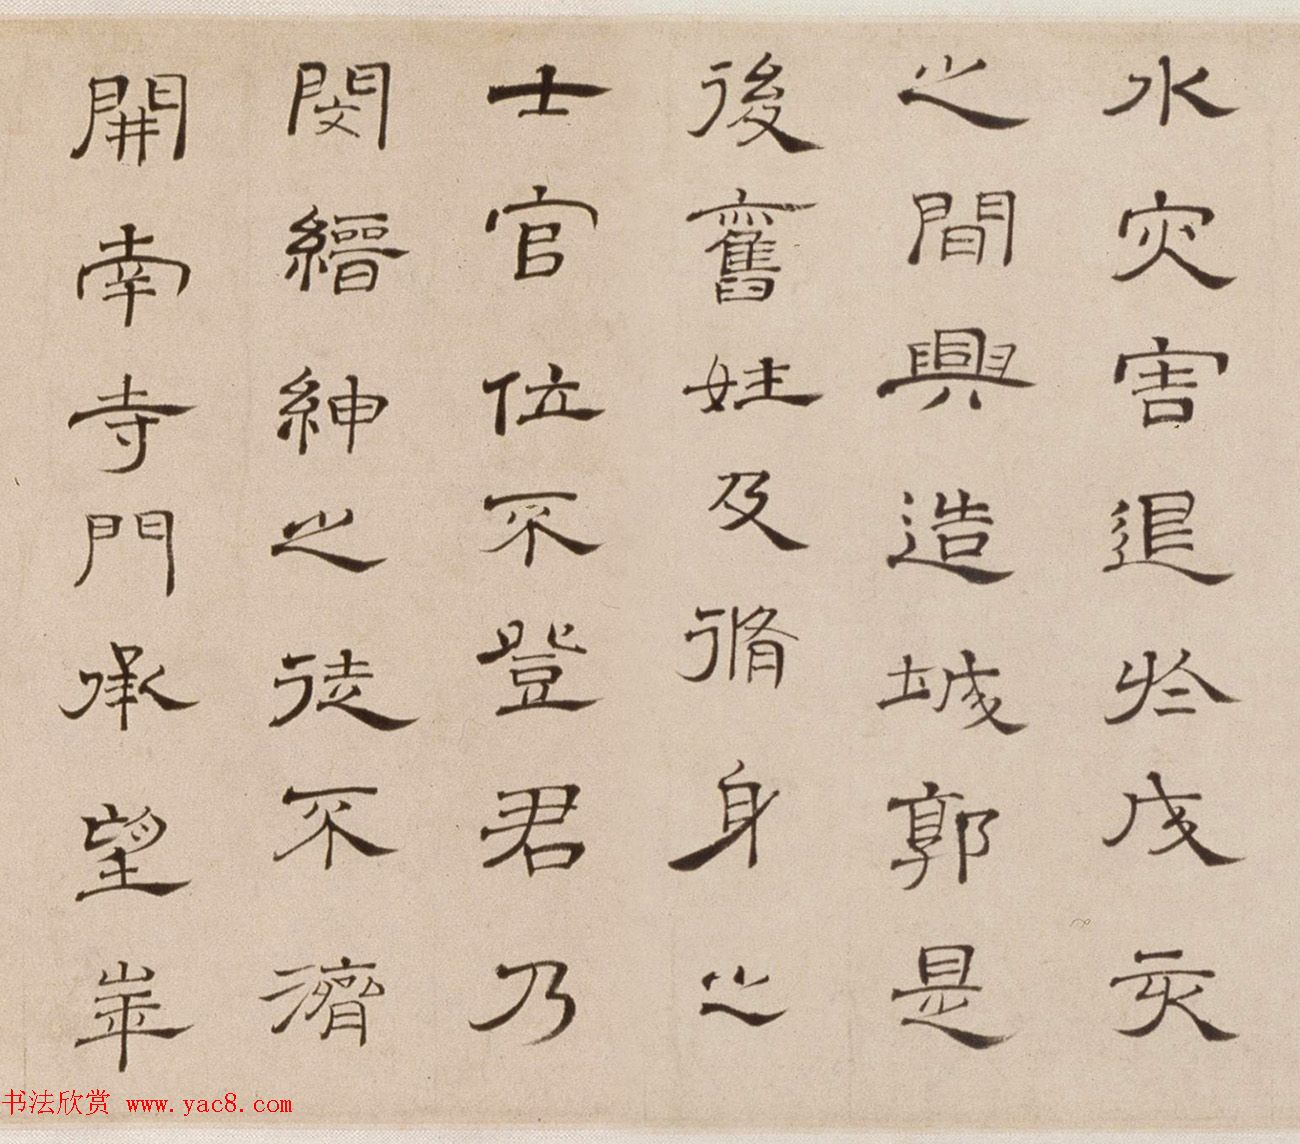 水灾害退於戊亥
之間興造城郭是
後舊姓及脩身之
士官位不登君乃
閔縉紳之徒不濟
開南寺門承望華
书法欣赏 www.yac8.com